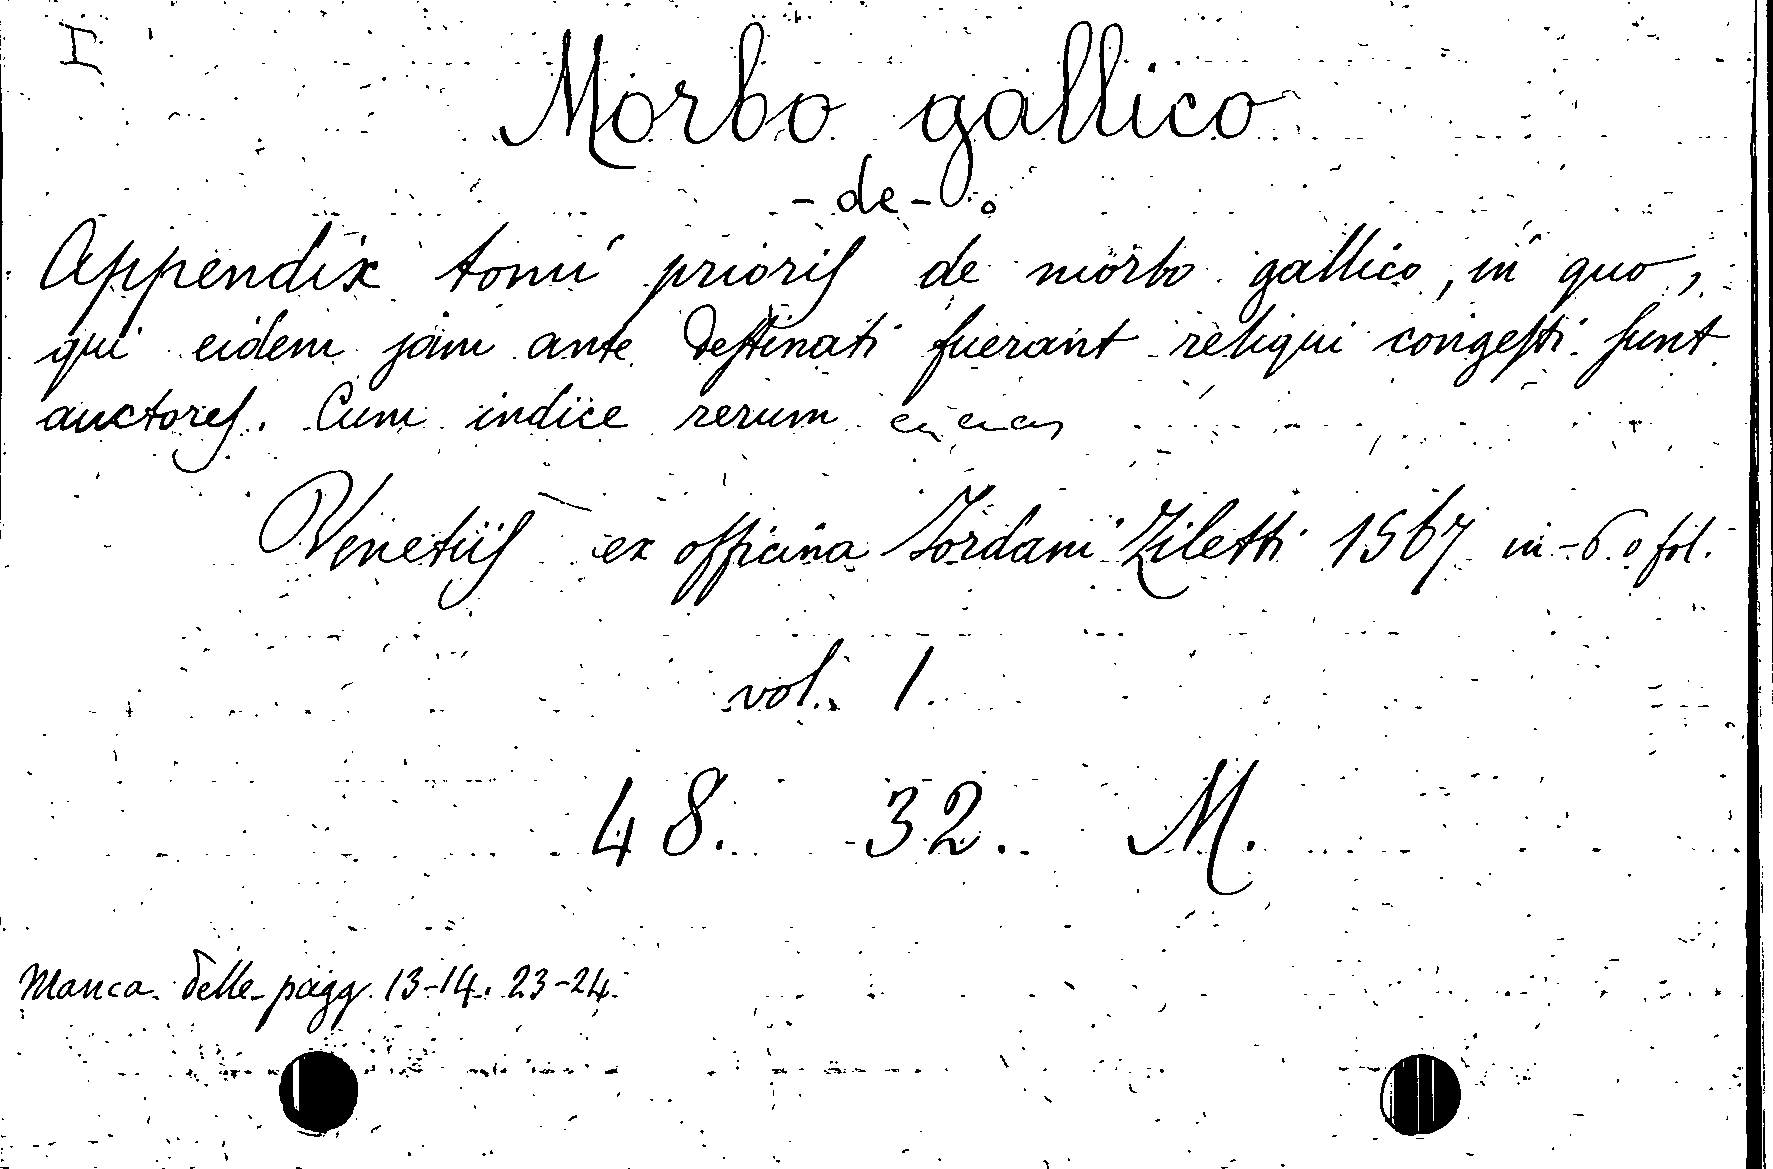 I
Morbo gallico
- de - .
Appendix tomi prioris de morbo gallico, in quo,
qui eidem jam ante destinati fuerant reliqui congesti sunt
auctores. Cum indice rerum
Venetiis ex officina Jordani Ziletti 1567 in-6.º fol.
vol. 1.
48. 32. M.
Manca delle pagg. 13-14. 23-24.